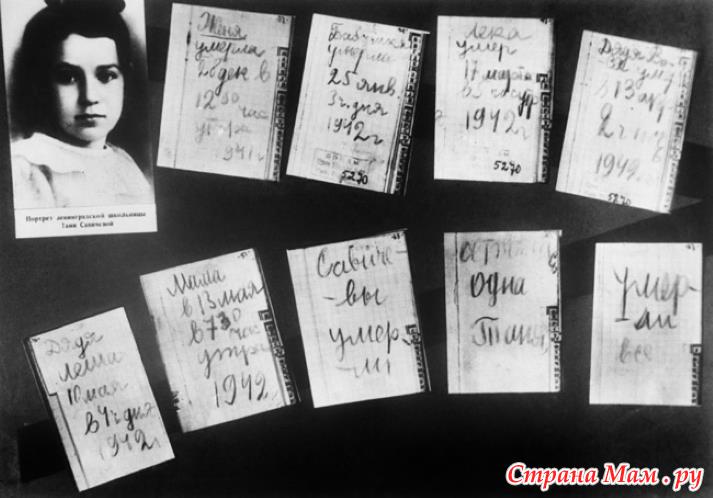 Портрет ленинградской школьницы
Тани Савичевой
Женя
умерла
28 дек в
12 00 час
утра
1941 г
Бабушка
умерла
25 янв.
3 ч дня
1942 г
5270
Лека
умер
17 марта
в 5 час утр
1942 г
5270
Дядя Ва-
ся ум
в 13 апр
2 ч
1942 г
5270
Дядя
Леша
10 мая
в 4 ч дня
1942 г
Мама
в 13 мая
в 7 30
час
утра
1942 г
Савиче-
-вы
умер-
-ли
одна
Таня
умер-
-ли
все
Страна Мам.ру